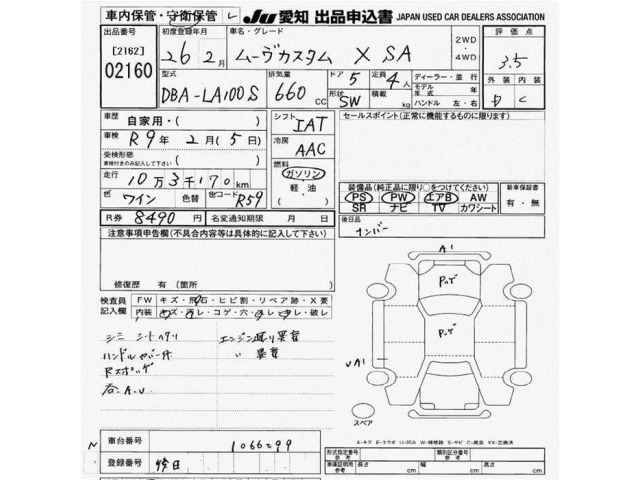 車内保管・守衛保管 レ
JU 愛知 出品申込書 JAPAN USED CAR DEALERS ASSOCIATION
出品番号 初度登録年月 車名・グレード 2WD 評価点
[2162] 26年 2月 ムーヴカスタム X SA ・ 3.5
02160 4WD
型式 排気量 ドア 5 定員 4人 ディーラー・並行 外装 内装
DBA-LA100S 660 cc 形状 SW 積載 kg モデル年式 年 D C
ハンドル 左・右
車歴 自家用・( ) シフト IAT セールスポイント(正常に機能するものに限ります)
車検 R9年 2月(5日) 冷房 AAC
受検形態
車検付きのみ記入して下さい ( )
燃料
走行 10万3千170km ガソリン
軽・油
色 ワイン 色替 色コード R59 ・( )
装備品(純正品に限り○をつけてください) 新車保証書
PS PW エアB AW 有・無
SR ナビ TV カワシート
R券 8490円 名変通知期限 月 日
後日品
ナンバー
注意事項申告欄(不具合内容等は具体的に記入して下さい)
修復歴 有(箇所 )
検査員 FW キズ・飛石・ヒビ割・リペア跡・X要
記入欄 内装 キズ・汚レ・コゲ・穴・
破レ
A1
ハンドルカバー
A1
スペア
A-キズ E-エクボ
車台番号 1066299
登録番号 後日
形式指定番号 参考 類別区分番号 参考
車庫証明用 参考 長さ cm 幅 cm 高さ cm